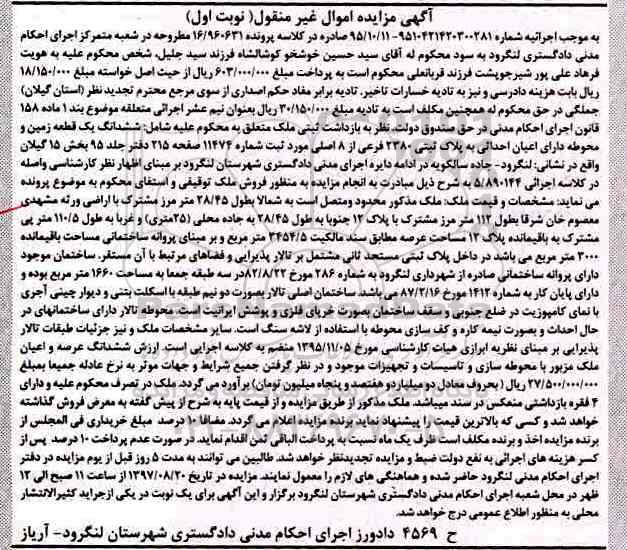 آگهی مزایده اموال غیر منقول( نوبت اول)
به موجب اجرائیه شماره ۹۵۱۰۴۲۱۴۲۰۳۰۰۲۸۱-۹۵/۱۰/۱۱ صادره در کلاسه پرونده ۱۶/۹۶۰۶۳۱ مطروحه در شعبه متمرکز اجرای احکام
مدنی دادگستری لنگرود به سود محکوم له آقای سید حسین خوشخو کوشالشاه فرزند سید جلیل، شخص محکوم علیه به هویت
فرهاد علی پور شیرجوپشت فرزند قربانعلی محکوم است به پرداخت مبلغ ۶۰۳/۰۰۰/۰۰۰ ریال از حیث اصل خواسته مبلغ ۱۸/۱۵۰/۰۰۰
ریال بابت هزینه دادرسی و نیز به تادیه خسارات تاخیر. تادیه برابر مفاد حکم اصداری از سوی مرجع محترم تجدید نظر (استان گیلان)
جملگی در حق محکوم له همچنین مکلف است به تادیه مبلغ ۳۰/۱۵۰/۰۰۰ ریال بعنوان نیم عشر اجرائی متعلقه موضوع بند ۱ ماده ۱۵۸
قانون اجرای احکام مدنی در حق صندوق دولت. نظر به بازداشت ثبتی ملک متعلق به محکوم علیه شامل: ششدانگ یک قطعه زمین و
محوطه دارای اعیان احداثی به پلاک ثبتی ۲۳۸۰ فرعی از ۸ اصلی مورد ثبت شماره ۱۱۴۷۴ صفحه ۲۱۵ دفتر جلد ۹۵ بخش ۱۵ گیلان
واقع در نشانی: لنگرود- جاده سالکویه در ادامه دایره اجرای مدنی دادگستری شهرستان لنگرود بر مبنای اظهار نظر کارشناسی واصله
در کلاسه اجرائی ۵/۸۹۰۱۴۴ به شرح ذیل مبادرت به انجام مزایده به منظور فروش ملک توقیفی و استفای محکوم به موضوع پرونده
می نماید: مشخصات و قیمت ملک: ملک مذکور محدود ومتصل است به شمالا بطول ۲۸/۴۵ متر مرز مشترک با اراضی ورثه مشهدی
معصوم خان شرقا بطول ۱۱۲ متر مرز مشترک با پلاک ۱۲ جنوبا به طول ۲۸/۴۵ به جاده محلی (۲۵متری) و غربا به طول ۱۱۰/۵ متر پی
مشترک به باقیمانده پلاک ۱۳ مساحت عرصه مطابق سند مالکیت ۳۴۵۴/۵ متر مربع و بر مبنای پروانه ساختمانی مساحت باقیمانده
۳۰۰۰ متر مربع می باشد در داخل پلاک ثبتی مستحد ثانی مشتمل بر تالار پذیرایی و فضاهای مرتبط با آن مستقر. ساختمان موجود
دارای پروانه ساختمانی صادره از شهرداری لنگرود به شماره ۲۸۶ مورخ ۸۲/۸/۲۲در سه طبقه جمعا به مساحت ۱۶۶۰ متر مربع بوده و
دارای پایان کار به شماره ۱۴۱۲ مورخ ۸۷/۳/۱۶ می باشد. ساختمان اصلی تالار بصورت دو نیم طبقه با اسکلت بتنی و دیوار چینی آجری
با نمای کامپوزیت در ضلع جنوبی و سقف ساختمان بصورت خرپای فلزی و پوشش ایرانیت است. محوطه تالار دارای ساختمانهای در
حال احداث و بصورت نیمه کاره و کف سازی محوطه با استفاده از لاشه سنگ است. سایر مشخصات ملک و نیز جزئیات طبقات تالار
پذیرایی بر مبنای نظریه ابرازی هیات کارشناسی مورخ ۱۳۹۵/۱۱/۰۵ منضم به کلاسه اجرایی است. ارزش ششدانگ عرصه و اعیان
ملک مزبور با محوطه سازی و تاسیسات و تجهیزات موجود و در نظر گرفتن جمیع شرایط و جهات موثر به نرخ عادله جمیعا بمبلغ
۲۷/۵۰۰/۰۰۰/۰۰۰ ریال (بحروف معادل دو میلیاردو هفتصد و پنجاه میلیون تومان) برآورد می گردد. ملک در تصرف محکوم علیه و دارای
۴ فقره بازداشتی منعکس در سند میباشد. ملک مذکور از طریق مزایده و از قیمت پایه به شرح از پیش گفته به معرض فروش گذاشته
خواهد شد و کسی که بالاترین قیمت را پیشنهاد نماید برنده مزایده اعلام می گردد. مضافا ۱۰ درصد مبلغ خریداری فی المجلس از
برنده مزایده اخذ و برنده مکلف است ظرف یک ماه نسبت به پرداخت الباقی ثمن اقدام نماید. در صورت عدم پرداخت ۱۰ درصد پس از
کسر هزینه های اجرائی به نفع دولت ضبط و مزایده تجدیدنظر خواهد شد. طالبین می توانند به مدت ۵ روز قبل از یوم مزایده در دفتر
اجرای احکام مدنی لنگرود حاضر شده و هماهنگی های لازم را معمول نمایند. مزایده در تاریخ ۱۳۹۷/۰۸/۲۰ از ساعت ۱۱ صبح الی ۱۲
ظهر در محل شعبه اجرای احکام مدنی دادگستری شهرستان لنگرود برگزار و این آگهی برای یک نوبت در یکی ازجراید کثیرالانتشار
محلی به منظور اطلاع عمومی درج خواهد شد.
ح ۴۵۶۹ دادورز اجرای احکام مدنی دادگستری شهرستان لنگرود- آریاز